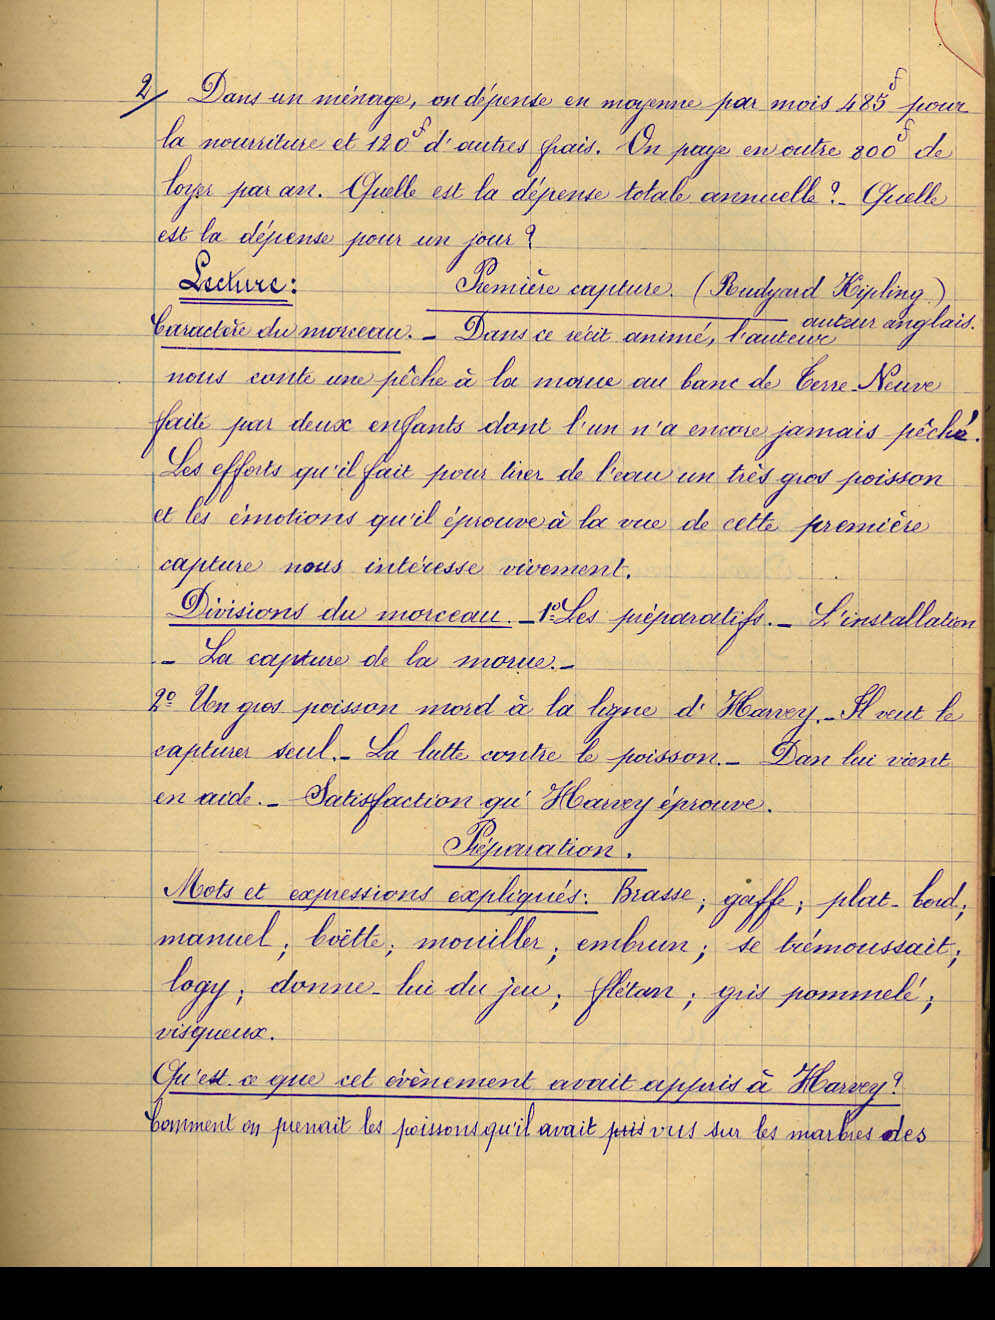 2/ Dans un ménage, on dépense en moyenne par mois 485f pour
la nourriture et 120f d'autres frais. On paye en outre 800f de
loyer par an. Quelle est la dépense totale annuelle ?_ Quelle
est la dépense pour un jour ?
Lecture: Première capture. (Rudyard Kipling.)
auteur anglais.
Caractère du morceau._ Dans ce récit animé, l'auteur
nous conte une pêche à la morue au banc de Terre-Neuve
faite par deux enfants dont l'un n'a encore jamais pêché.
Les efforts qu'il fait pour tirer de l'eau un très gros poisson
et les émotions qu'il éprouve à la vue de cette première
capture nous intéresse vivement.
Divisions du morceau._ 1º Les préparatifs._ L'installation
_ La capture de la morue._
2º Un gros poisson mord à la ligne d'Harvey._ Il veut le
capturer seul._ La lutte contre le poisson._ Dan lui vient
en aide._ Satisfaction qu'Harvey éprouve.
Préparation.
Mots et expressions expliqués: Brasse; gaffe; plat-bord;
manuel; boëtte; mouiller; embrun; se trémoussait;
logy; donne-lui du jeu; flétan; gris pommelé;
visqueux.
Qu'est-ce que cet évènement avait appris à Harvey?
Comment on prenait les poissons qu'il avait pris vus sur les marbres des